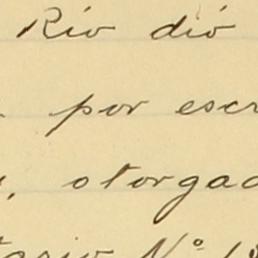 Rio dió
por escr
otorgad
tario Nº 18